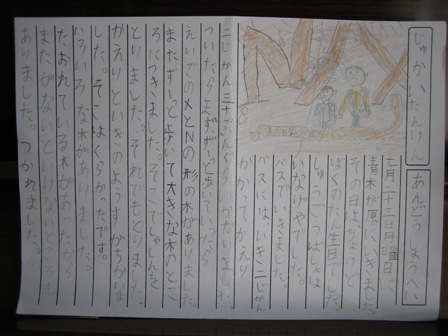 じゅかいたんけん
あんどうしょうへい
七月二十三日月曜日に、
青木が原にいきました。
その日はちょうど
ぼくのたん生日でした。
しゅうごうばしょは
いなげやでした。
バスでいきました。
バスには、いき二じかん
かかって、かえり
二じかん三十ぷんぐらいかかりました。
ついたらまずずーと歩いていったら
えいごのXとNの形の木がありました。
またずーと歩いて大きな木のとこ
ろにつきました。そこでしゃしんを
とりました。それでもどりました。
かえりといきのようすがちがいま
した。そこはくらかったです。
いろいろな木がありました。
たおれている木があったから、
またがないといけないところも
ありました。つかれました。